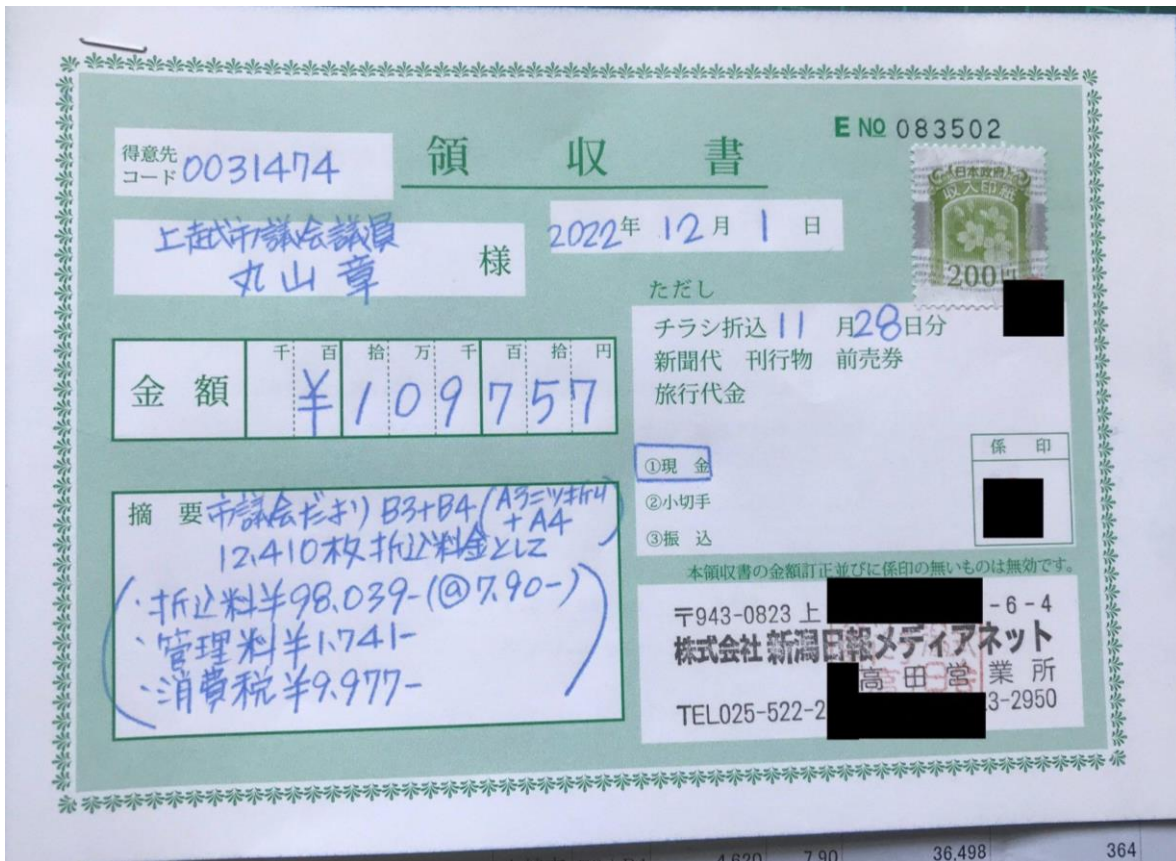 E NO 083502
領収書
得意先コード 0031474
日本政府
収入印紙
200円
上越市議会議員
丸山 章 様
2022年 12月 1日
ただし
チラシ折込 11月28日分
新聞代 刊行物 前売券
旅行代金
千百拾万千百拾円
金額 ¥109757
①現金
②小切手
③振込
係印
摘要 市議会だより B3+B4 (A3二ツ折り+A4)
12,410枚折込料金として
・折込料¥98,039-(@7.90-)
・管理料¥1,741-
・消費税¥9,977-
本領収書の金額訂正並びに係印の無いものは無効です。
〒943-0823 上 -6-4
株式会社 新潟日報メディアネット
高田営業所
TEL025-522-2 3-2950
4,620 7.90 36,498 364